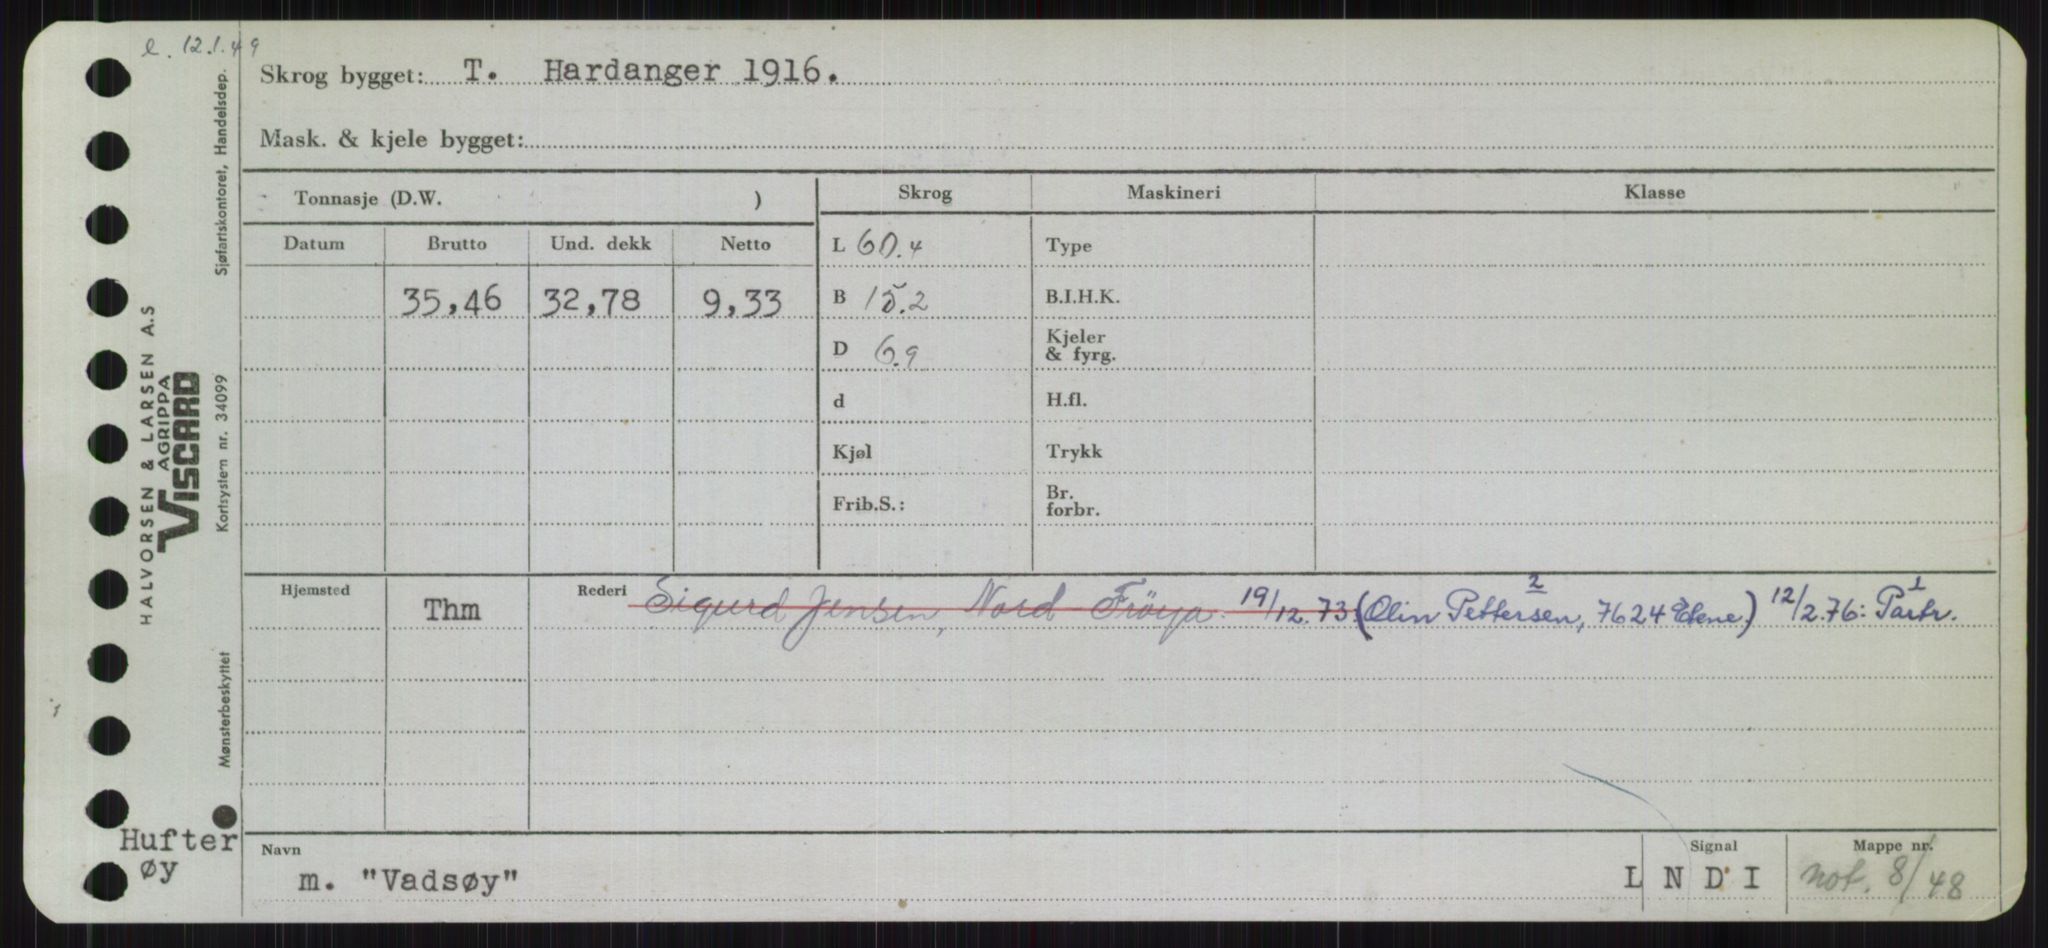 e. 12.1.49
Skrog bygget: T. Hardanger 1916.
Mask. & kjele bygget:
Tonnasje (D.W. )
Skrog Maskineri Klasse
Datum Brutto Und. dekk Netto
L 60.4 Type
35,46 32,78 9,33
B 15.2 B.I.H.K.
D 6.9 Kjeler & fyrg.
d H.fl.
Kjøl Trykk
Frib.S.: Br. forbr.
Hjemsted Thm Rederi Sigurd Jensen, Nord Frøya. 19/12.73 (Olin Pettersen, 7624 Ekne) 12/2.76: Partr.
2 1
Navn m. "Vadsøy" Signal L N D I Mappe nr. not. 8/48
Hufter
øy
HALVORSEN & LARSEN A.S
AGRIPPA
VISCARD
Kortsystem nr. 34099
Sjøfartskontoret, Handelsdep.
Mønsterbeskyttet